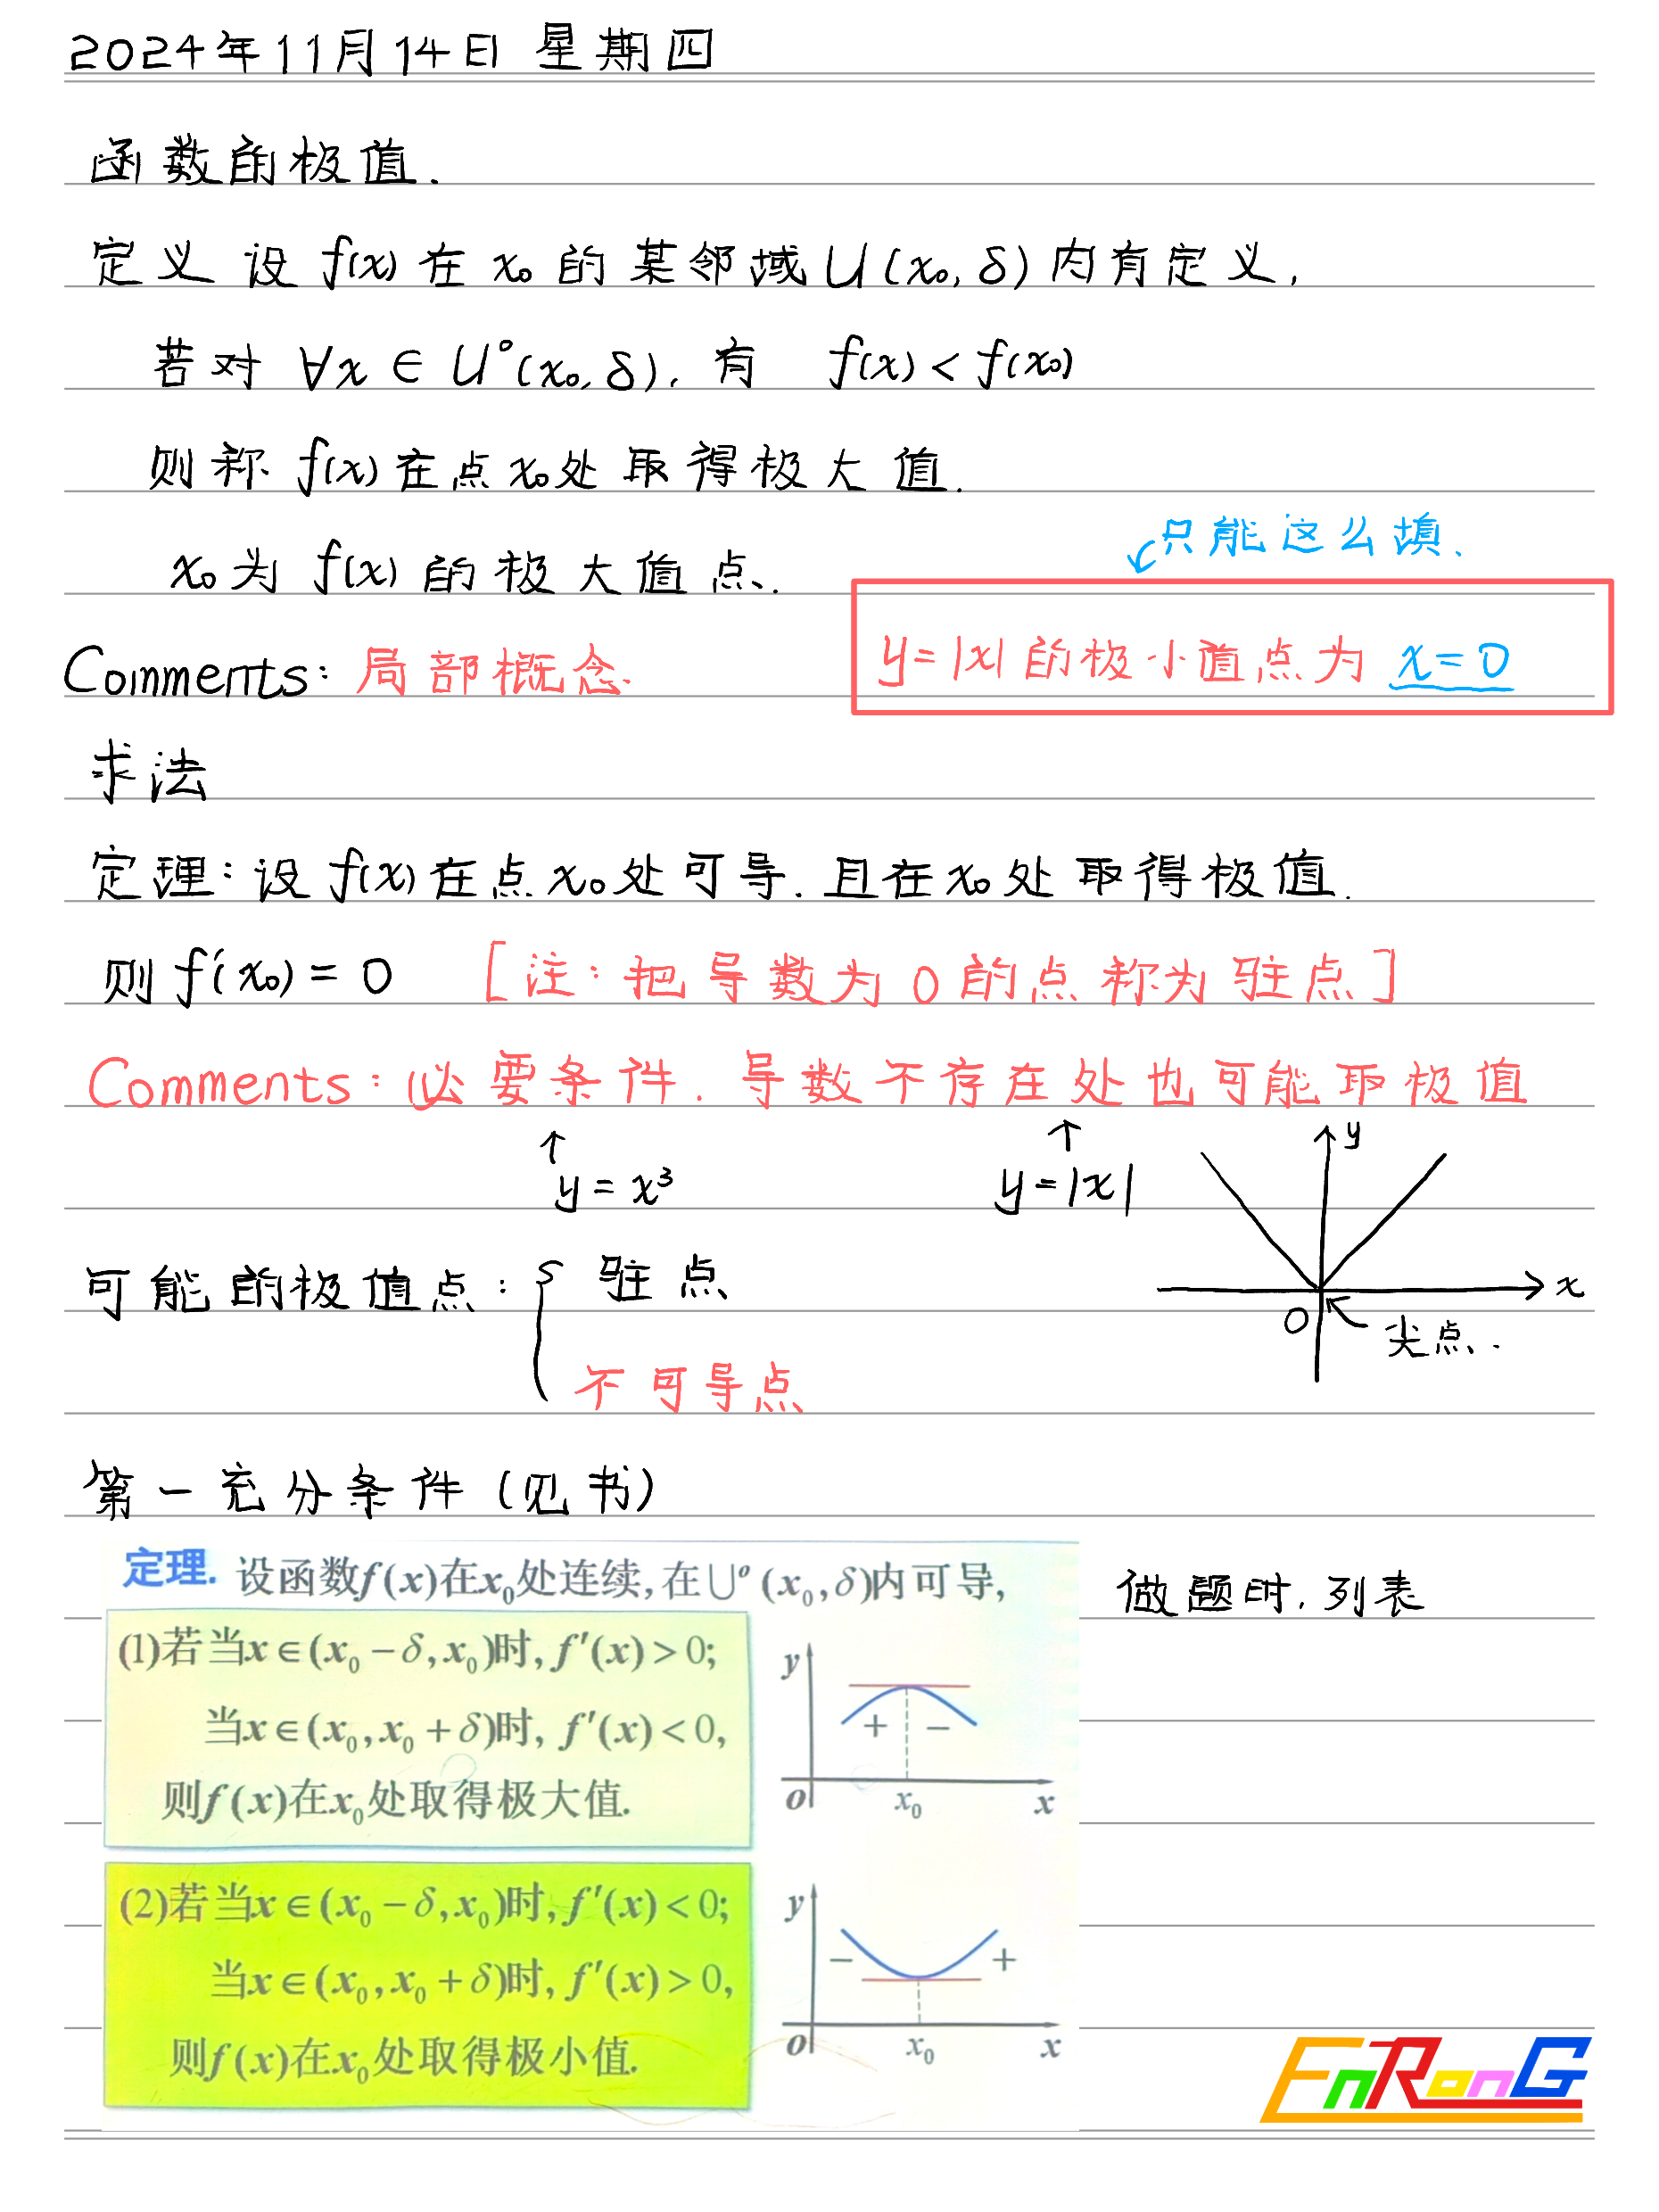 2024年11月14日 星期四
函数的极值.
定义 设 f(x) 在 x₀ 的某邻域 U(x₀, δ) 内有定义,
若对 ∀x ∈ U°(x₀, δ), 有 f(x) < f(x₀)
则称 f(x) 在点 x₀ 处取得极大值.
只能这么填.
x₀ 为 f(x) 的极大值点.
Comments: 局部概念.
y=|x| 的极小值点为 x=0
求法
定理: 设 f(x) 在点 x₀ 处可导. 且在 x₀ 处取得极值.
则 f'(x₀) = 0 [注: 把导数为 0 的点称为驻点]
Comments: 必要条件. 导数不存在处也可能取极值
↑ ↑ y
y = x³ y=|x|
可能的极值点: { 驻点
x
O 尖点.
不可导点
第一充分条件 (见书)
定理. 设函数f(x)在x₀处连续,在∪°(x₀,δ)内可导,
做题时, 列表
(1)若当x∈(x₀-δ,x₀)时,f'(x)>0;
当x∈(x₀,x₀+δ)时, f'(x)<0,
则f(x)在x₀处取得极大值.
y
+ −
o x₀ x
(2)若当x∈(x₀-δ,x₀)时,f'(x)<0;
当x∈(x₀,x₀+δ)时, f'(x)>0,
则f(x)在x₀处取得极小值.
y
− +
o x₀ x
EnRonG